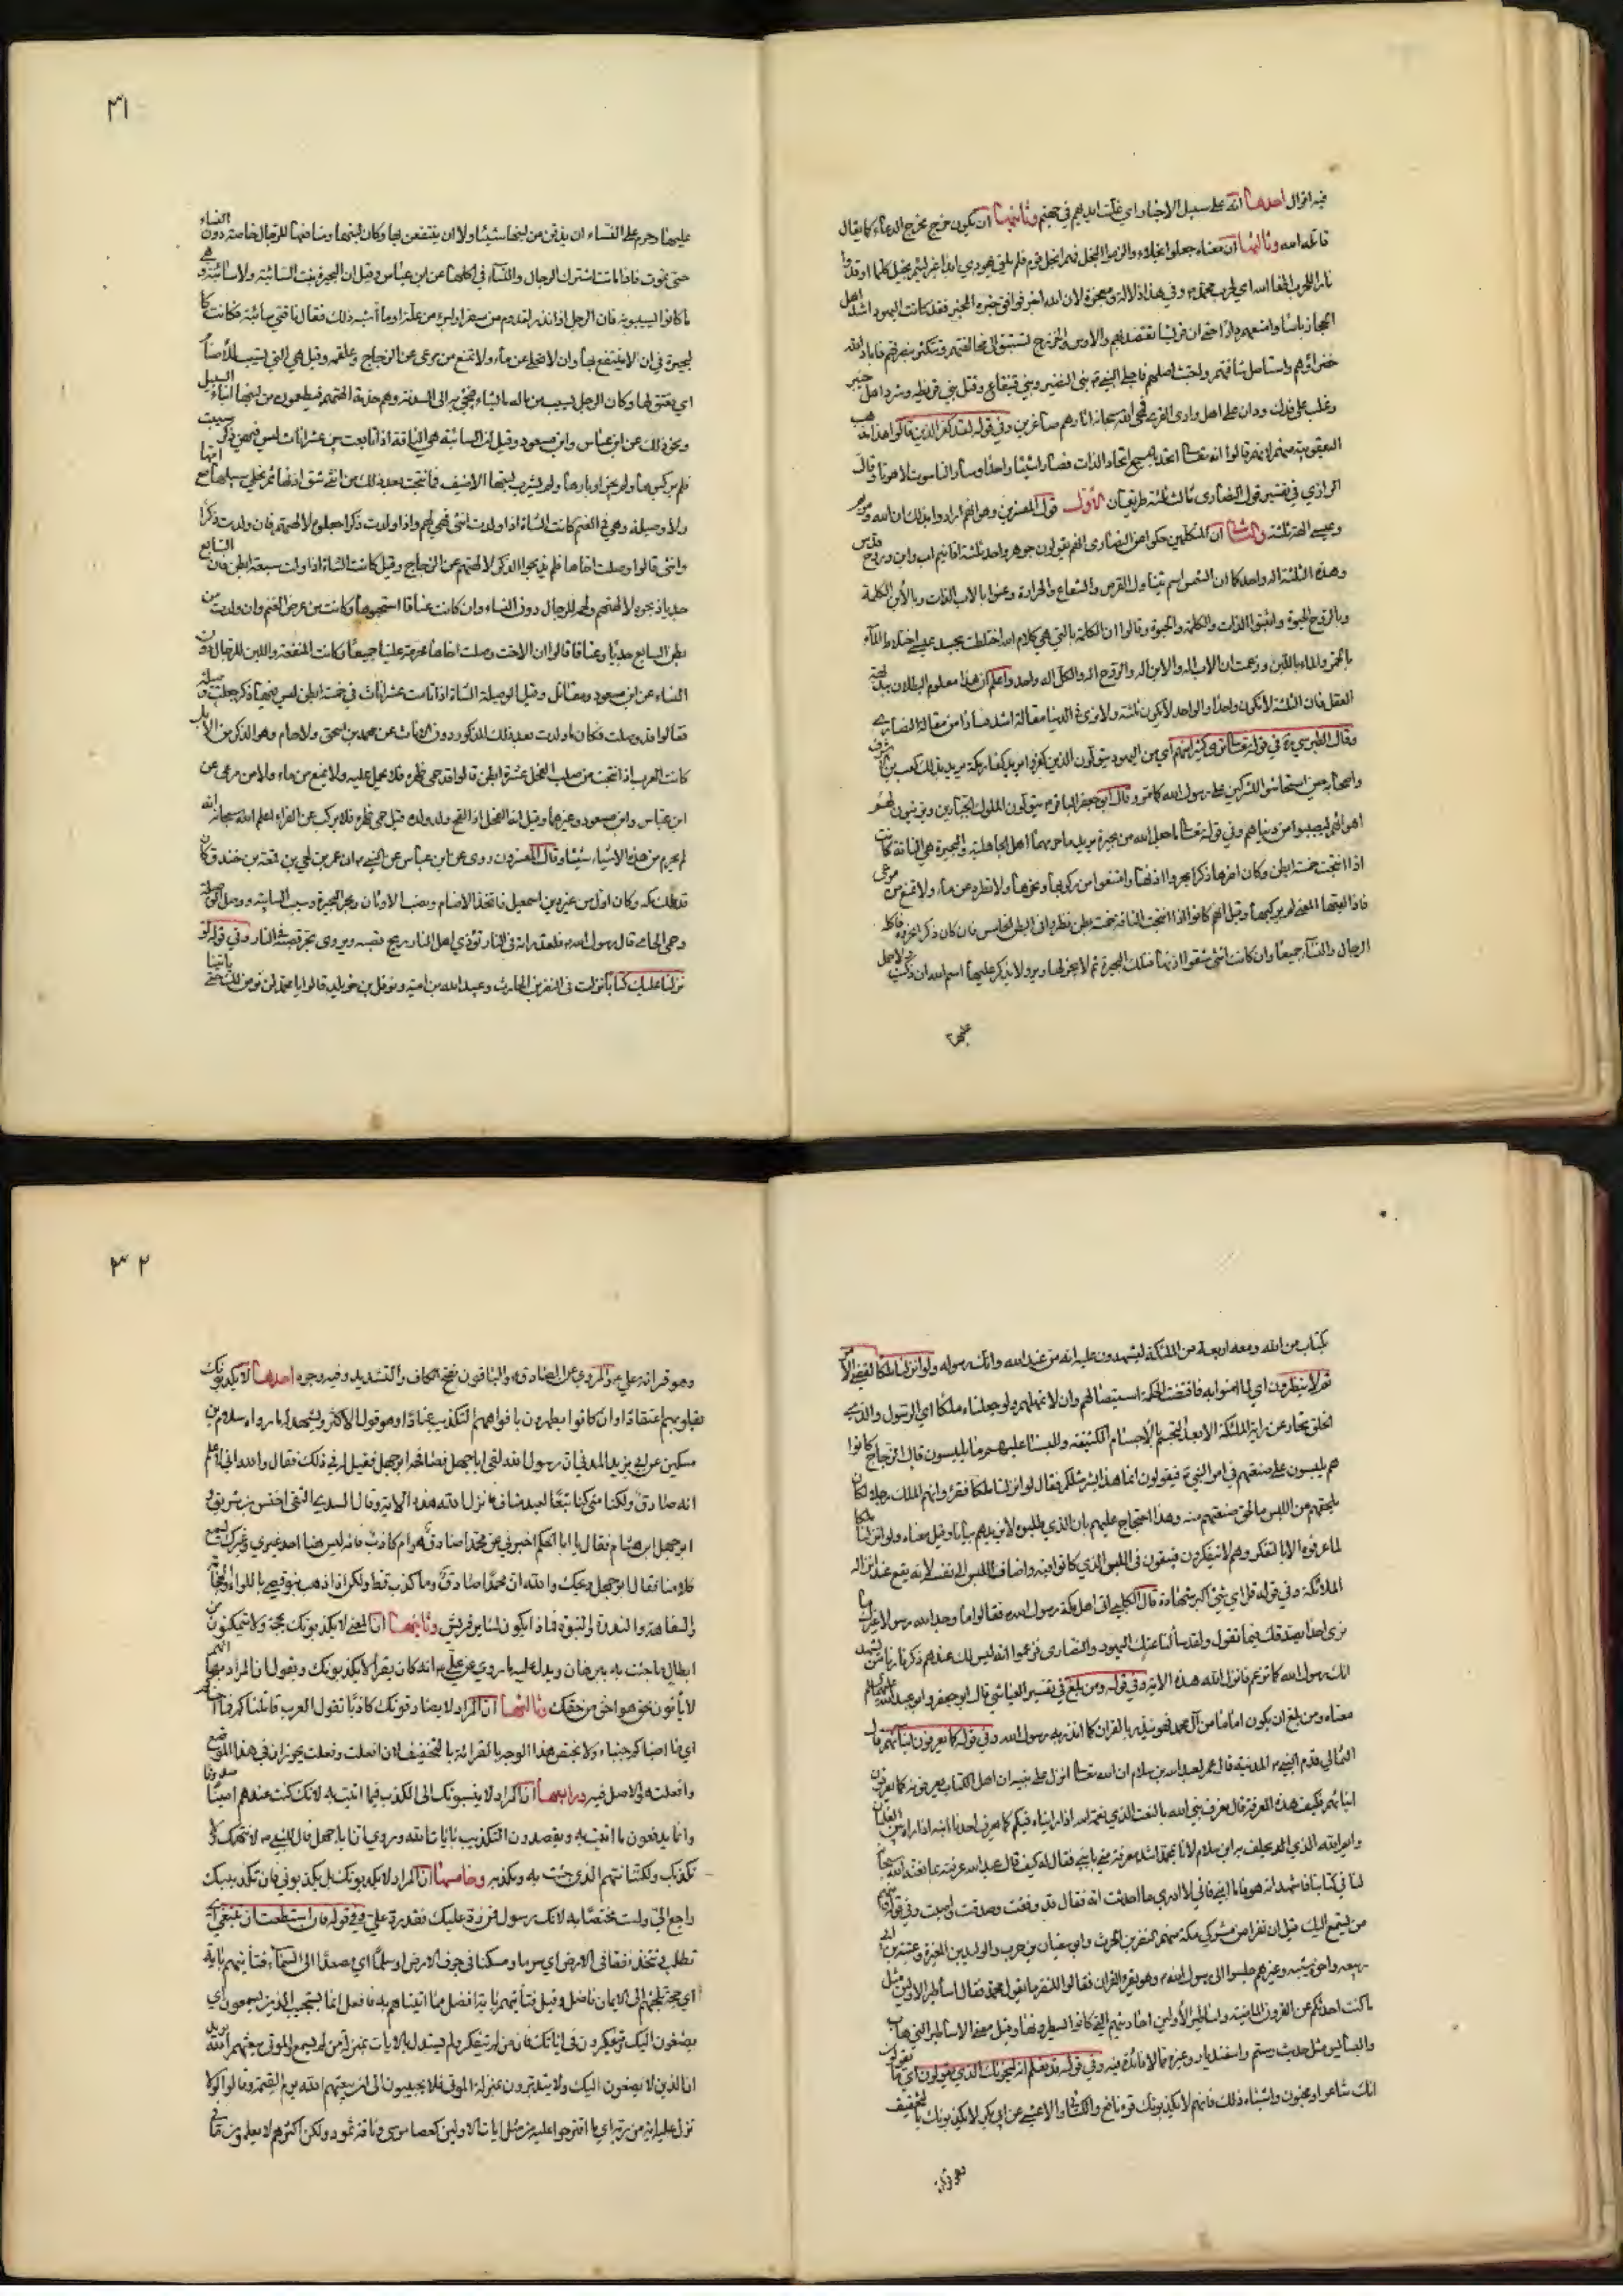 فيه اقوال احدها انه على سبيل الاخبار اي غلت ايديهم في جهنم وثانيها ان يكون خرج مخرج الدعاء كما يقال
قاتله الله وثالثها ان معناه جعلوا بخلاء والزموا البخل فهم ابخل قوم فلم يلق يهودي ابدا غير لئيم بخيل كلما اوقدوا
نارا للحرب اطفأها الله اي لحرب محمد وفي هذا دلالة ومعجزة لان الله اخبر فوافق خبره المخبر فقد كانت اليهود اشد اهل
الحجاز باسا وامنعهم دارا حتى ان قريشا تعتضد بهم والاوس والخزرج تستبق الى محالفتهم وتتكثر بنصرتهم فاباد الله
خضراءهم واستاصل شافتهم واجتث اصلهم فاجلى النبي بني النضير وبني قينقاع وقتل بني قريظة وشرد اهل خيبر
وغلب على فدك ودان له اهل وادي القرى فمحى الله سبحانه اثارهم صاغرين وفي قوله لقد كفر الذين قالوا هذا مذهب
اليعقوبية منهم لانهم قالوا ان الله تعالى اتحد بالمسيح اتحاد الذات فصارا شيئا واحدا وصار الناسوت لاهوتا وقال
الرازي في تفسير قول النصارى ثالث ثلثة طريقان الاول قول المفسرين وهو انهم ارادوا بذلك ان الله ومريم
وعيسى الهة ثلثة والثاني ان المتكلمين حكوا عن النصارى انهم يقولون جوهر واحد ثلثة اقانيم اب وابن وروح قدس
وهذه الثلثة اله واحد كما ان الشمس اسم يتناول القرص والشعاع والحرارة وعنوا بالاب الذات وبالابن الكلمة
وبالروح الحيوة واثبتوا الذات والكلمة والحيوة وقالوا ان الكلمة التي هي كلام الله اختلطت بجسد عيسى اختلاط الماء
بالخمر والماء باللبن وزعمت ان الاب اله والابن اله والروح اله والكل اله واحد واعلم ان هذا معلوم البطلان ببديهة
العقل فان الثلثة لا تكون واحدا والواحد لا يكون ثلثة ولا نرى في الدنيا مقالة اشد فسادا من مقالة النصارى
وقال الطبرسي في قوله تعالى ترى كثيرا منهم اي من اليهود يتولون الذين كفروا يريد كفار مكة يريد بذلك كعب بن اشرف
واصحابه حين استجاشوا المشركين على رسول الله كما مر وقال ابو جعفر الباقر يتولون الملوك الجبارين ويزينون لهم
اهواءهم ليصيبوا من دنياهم وفي قوله تعالى ما جعل الله من بحيرة يريد ما حرمها اهل الجاهلية والبحيرة هي الناقة كانت
اذا انتجت خمسة ابطن وكان اخرها ذكرا بحروا اذنها وامتنعوا من ركوبها ونحرها ولا تطرد عن ماء ولا تمنع من مرعى
فاذا لقيها المعيي لم يركبها وقيل انهم كانوا اذا انتجت الناقة خمسة ابطن نظروا في البطن الخامس فان كان ذكرا نحروه فاكله
الرجال والنساء جميعا وان كانت انثى شقوا اذنها فتلك البحيرة ثم لا يجز لها وبر ولا يذكر عليها اسم الله ان ذكيت ولا حمل
عليها
٣١
عليها وحرم على النساء ان يذقن من لبنها شيئا ولا ان ينتفعن بها وكان لبنها ومنافعها للرجال خاصة دون النساء
حتى تموت فاذا ماتت اشترك الرجال والنساء في اكلها عن ابن عباس وقيل ان البحيرة بنت السائبة ولا سائبة وهي
ما كانوا يسيبونه فان الرجل اذا نذر لقدوم من سفر او لبرء من علة او ما اشبه ذلك فقال ناقتي سائبة فكانت كا
لبحيرة في ان لا ينتفع بها وان لا تخلى عن ماء ولا تمنع من مرعى عن الزجاج وعلقمة وقيل هي التي تسيب للاصنام
اي تعتق لها وكان الرجل يسيب من ماله ما يشاء فيجيء به الى السدنة وهم خدمة الهتهم فيطعمون من لبنها ابناء السبيل
ونحو ذلك عن ابن عباس وابن مسعود وقيل ان السائبة هي الناقة اذا تابعت بين عشر اناث ليس فيهن ذكر سيبت
فلم يركبوها ولم يجزوا وبرها ولم يشرب لبنها الا ضيف فما نتجت بعد ذلك من انثى شق اذنها ثم يخلى سبيلها مع امها
ولا وصيلة وهي في الغنم كانت الشاة اذا ولدت انثى فهي لهم واذا ولدت ذكرا جعلوه لالهتهم فان ولدت ذكرا
وانثى قالوا وصلت اخاها فلم يذبحوا الذكر لالهتهم عن الزجاج وقيل كانت الشاة اذا ولدت سبعة ابطن فان كان السابع
جديا ذبحوه لالهتهم ولحمه للرجال دون النساء وان كانت عناقا استحيوها وكانت من عرض الغنم وان ولدت من
بطن السابع جديا وعناقا قالوا ان الاخت وصلت اخاها محرمة علينا جميعا وكانت المنفعة واللبن للرجال دون
النساء عن ابن مسعود ومقاتل وقيل الوصيلة الشاة اذا اتامت عشر اناث في خمسة ابطن ليس فيها ذكر جعلت وصيلة
فقالوا قد وصلت فكان ما ولدت بعد ذلك للذكور دون الاناث عن محمد بن اسحق ولا حام وهو الذكر من الابل
كانت العرب اذا انتجت من صلب الفحل عشرة ابطن قالوا قد حمى ظهره فلا يحمل عليه ولا يمنع من ماء ولا من مرعى عن
ابن عباس وابن مسعود وغيرهما وقيل انه الفحل اذا لقح ولد ولده قيل حمى ظهره فلا يركب عن الفراء اعلم الله سبحانه انه
لم يحرم من هذه الاشياء شيئا وقال المفسرون وروى عن ابن عباس عن النبي ان عمرو بن لحي بن قمعة بن خندف كان
قد ملك مكة وكان اول من غير دين اسمعيل فاتخذ الاصنام ونصب الاوثان وبحر البحيرة وسيب السائبة ووصل الوصيلة
وحمى الحامي قال رسول الله فلقد رايته في النار تؤذي اهل النار ريح قصبه ويروى يجر قصبه في النار وفي قوله ولو
نزلنا عليك كتابا نزلت في النضر بن الحارث وعبد الله بن امية ونوفل بن خويلد قالوا يا محمد لن نؤمن لك حتى تاتينا
بكتاب من الله ومعه اربعة من الملئكة يشهدون عليه انه من عند الله وانك رسوله ولو انزلنا ملكا لقضي الامر
ثم لا ينظرون اي لما امنوا به فاقتضت الحكمة استيصالهم وان لا يمهلهم ولو جعلناه ملكا اي الرسول والذي
الخلق تحار عن راية الملئكة الا بعد التجسم بالاجسام الكثيفة وللبسنا عليهم ما يلبسون قال الزجاج كانوا
هم يلبسون على ضعفتهم في امر النبي فيقولون انما هذا بشر مثلكم فقال لو انزلنا ملكا فراوهم الملك رجلا لكان
يلحقهم من اللبس ما لحق ضعفتهم منه وهذا احتجاج عليهم بان الذي طلبوه لا يزيدهم بيانا وقيل معناه ولو انزلنا ملكا
لما عرفوه الا بالتفكر وهم لا يتفكرون فيبقون في اللبس الذي كانوا فيه واضاف اللبس الى نفسه لانه يقع عند انزاله
الملائكة وفي قوله قل اي شيء اكبر شهادة قال الكلبي اتى اهل مكة رسول الله فقالوا اما وجد الله رسولا غيرك ما
نرى احدا يصدقك فيما تقول ولقد سالنا عنك اليهود والنصارى فزعموا انه ليس لك عندهم ذكر فارنا من يشهد
انك رسول الله كما تزعم فانزل الله هذه الاية وفي قوله ومن بلغ في تفسير العياشي قال ابو جعفر وابو عبد الله عليهما السلام
معناه ومن بلغ ان يكون اماما من آل محمد فهو ينذر بالقران كما انذر به رسول الله وفي قوله كما يعرفون ابناءهم قال
الثمالي قدم النبي المدينة قال عمر لعبد الله بن سلام ان الله تعالى انزل على نبيه ان اهل الكتاب يعرفونه كما يعرفون
ابناءهم فكيف هذه المعرفة قال نعرف نبي الله بالنعت الذي نعته الله اذا رايناه فيكم كما يعرف احدنا ابنه اذا راه مع الغلمان
وايم الله الذي يحلف به ابن سلام لانا بمحمد اشد معرفة مني بابني فقال له كيف قال عبد الله عرفته بما نعته الله سبحانه
لنا في كتابنا فاشهد انه هو فاما ابني فاني لا ادري ما احدثت امه فقال قد وفقت وصدقت واصبت وفي قوله ومنهم
من يستمع اليك قيل ان نفرا من مشركي مكة منهم النضر بن الحرث وابو سفيان بن حرب والوليد بن المغيرة وعتبة بن ابي
ربيعة واخوه شيبة وغيرهم جلسوا الى رسول الله وهو يقرء القران فقالوا للنضر ما يقول محمد فقال اساطير الاولين مثل
ما كنت احدثكم عن القرون الماضية واساطير الاولين احاديثهم التي كانوا يسطرونها وقيل معنى الاساطير الترهات
والبسابس مثل حديث رستم واسفنديار وغيره مما لا فائدة فيه وفي قوله قد نعلم انه ليحزنك الذي يقولون اي ما يقولون
انك شاعر او مجنون واشباه ذلك فانهم لا يكذبونك قرء نافع والكسائي والاعشى عن ابي بكر لا يكذبونك بالتخفيف
وهو قراءة
٣٢
وهو قراءة علي والمروي عن الصادق والباقون بفتح الكاف والتشديد وفيه وجوه احدها لا يكذبونك
بقلوبهم اعتقادا وان كانوا يظهرون بافواههم التكذيب عنادا وهو قول الاكثر ويشهد له ما رواه سلام بن
مسكين عن ابي يزيد المدني ان رسول الله لقي ابا جهل فصافحه ابو جهل فقيل له في ذلك فقال والله اني لاعلم
انه صادق ولكنا متى كنا تبعا لعبد مناف فانزل الله هذه الاية وقال السدي التقى اخنس بن شريق و
ابو جهل ابن هشام فقال يا ابا الحكم اخبرني عن محمد اصادق هو ام كاذب فانه ليس ههنا احد غيري وغيرك يسمع
كلامنا فقال ابو جهل ويحك والله ان محمدا صادق وما كذب قط ولكن اذا ذهب بنو قصي باللواء والحجابة
والسقاية والندوة والنبوة فماذا يكون لسائر قريش وثانيها ان المعنى لا يكذبونك بحجة ولا يتمكنون من
ابطال ما جئت به ببرهان ويدل عليه ما روي عن علي انه كان يقرا لا يكذبونك ويقول ان المراد بها انهم
لا ياتون بحق هو احق من حقك وثالثها ان المراد لا يصادفونك كاذبا تقول العرب قاتلناكم فما اجبناكم
اي ما اصبناكم جبناء ولا يختص هذا الوجه بالقراءة بالتخفيف لان افعلت وفعلت يجوزان في هذا الموضع
وافعلت هو الاصل فيه ورابعها ان المراد لا ينسبونك الى الكذب فيما اتيت به لانك كنت عندهم امينا صدوقا
وانما يدفعون ما اتيت به ويقصدون التكذيب بايات الله وروي ان ابا جهل قال للنبي لا نتهمك ولا
نكذبك ولكننا نتهم الذي جئت به ونكذبه وخامسها ان المراد لا يكذبونك بل يكذبوني فان تكذيبك
راجع الي ولست مختصا به لانك رسول فمن رد عليك فقد رد علي وفي قوله فان استطعت ان تبتغي اي
تطلب وتتخذ نفقا في الارض اي سربا ومسكنا في جوف الارض او سلما اي مصعدا الى السماء فتاتيهم باية
اي حجة تلجئهم الى الايمان فافعل وقيل فتاتيهم باية افضل مما اتيناهم به فافعل انما يستجيب الذين يسمعون اي
يصغون اليك ويتفكرون في اياتك فان من لم يتفكر ولم يستدل بالايات بمنزلة من لم يسمع والموتى يبعثهم الله يريد
ان الذين لا يصغون اليك ولا يتدبرون بمنزلة الموتى فلا يجيبون الى ان يبعثهم الله يوم القيمة وقالوا لولا
نزل عليه اية من ربه اي ما اقترحوا عليه من مثل ايات الاولين كعصا موسى وناقة ثمود ولكن اكثرهم لا يعلمون ما في